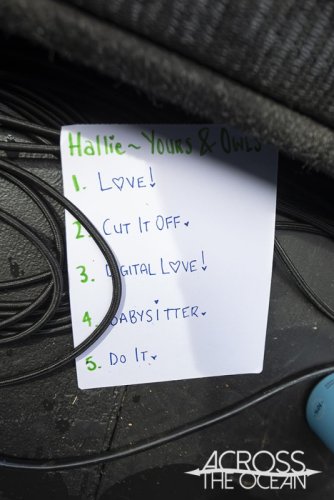 Hallie ~ Yours & Owls
1. LOVE!
2. CUT IT OFF.
3. DIGITAL LOVE!
4. BABYSITTER.
5. DO IT.
ACROSS
THE OCEAN